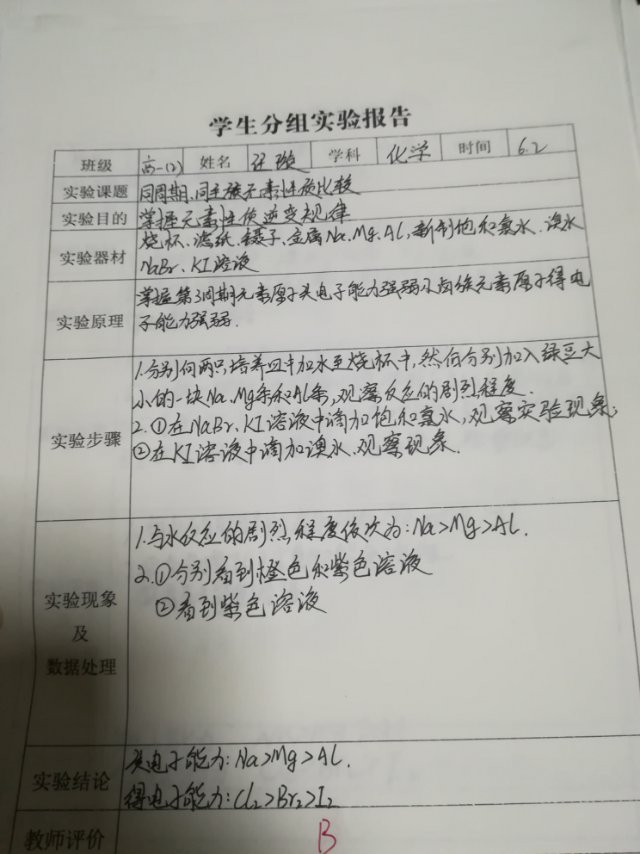 学生分组实验报告
班级 高一(2) 姓名 学科 化学 时间 6.2
实验课题 同周期、同主族元素性质比较
实验目的 掌握元素性质递变规律
实验器材 烧杯、滤纸、镊子、金属Na、Mg、Al,新制饱和氯水、溴水
NaBr、KI溶液
实验原理 掌握第3周期元素原子失电子能力强弱及卤族元素原子得电
子能力强弱.
实验步骤 1.分别向两只培养皿中加水至烧杯中,然后分别加入绿豆大
小的一块Na、Mg条和Al条,观察反应的剧烈程度.
2.①在NaBr、KI溶液中滴加饱和氯水,观察实验现象;
②在KI溶液中滴加溴水.观察现象.
实验现象
及
数据处理
1.与水反应的剧烈程度依次为:Na>Mg>Al.
2.①分别看到橙色和紫色溶液
②看到紫色溶液
实验结论 失电子能力:Na>Mg>Al.
得电子能力:Cl₂>Br₂>I₂
教师评价 B